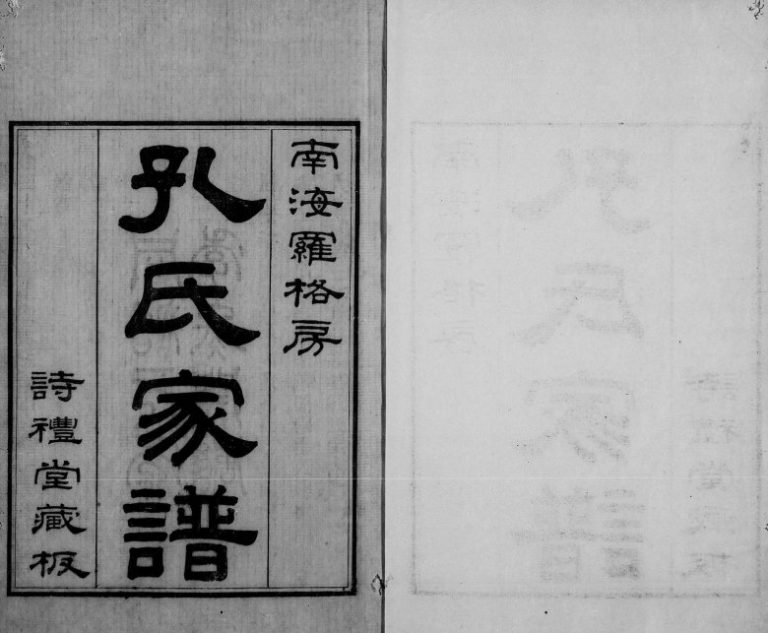 南海羅格房
孔氏家譜
詩禮堂藏板